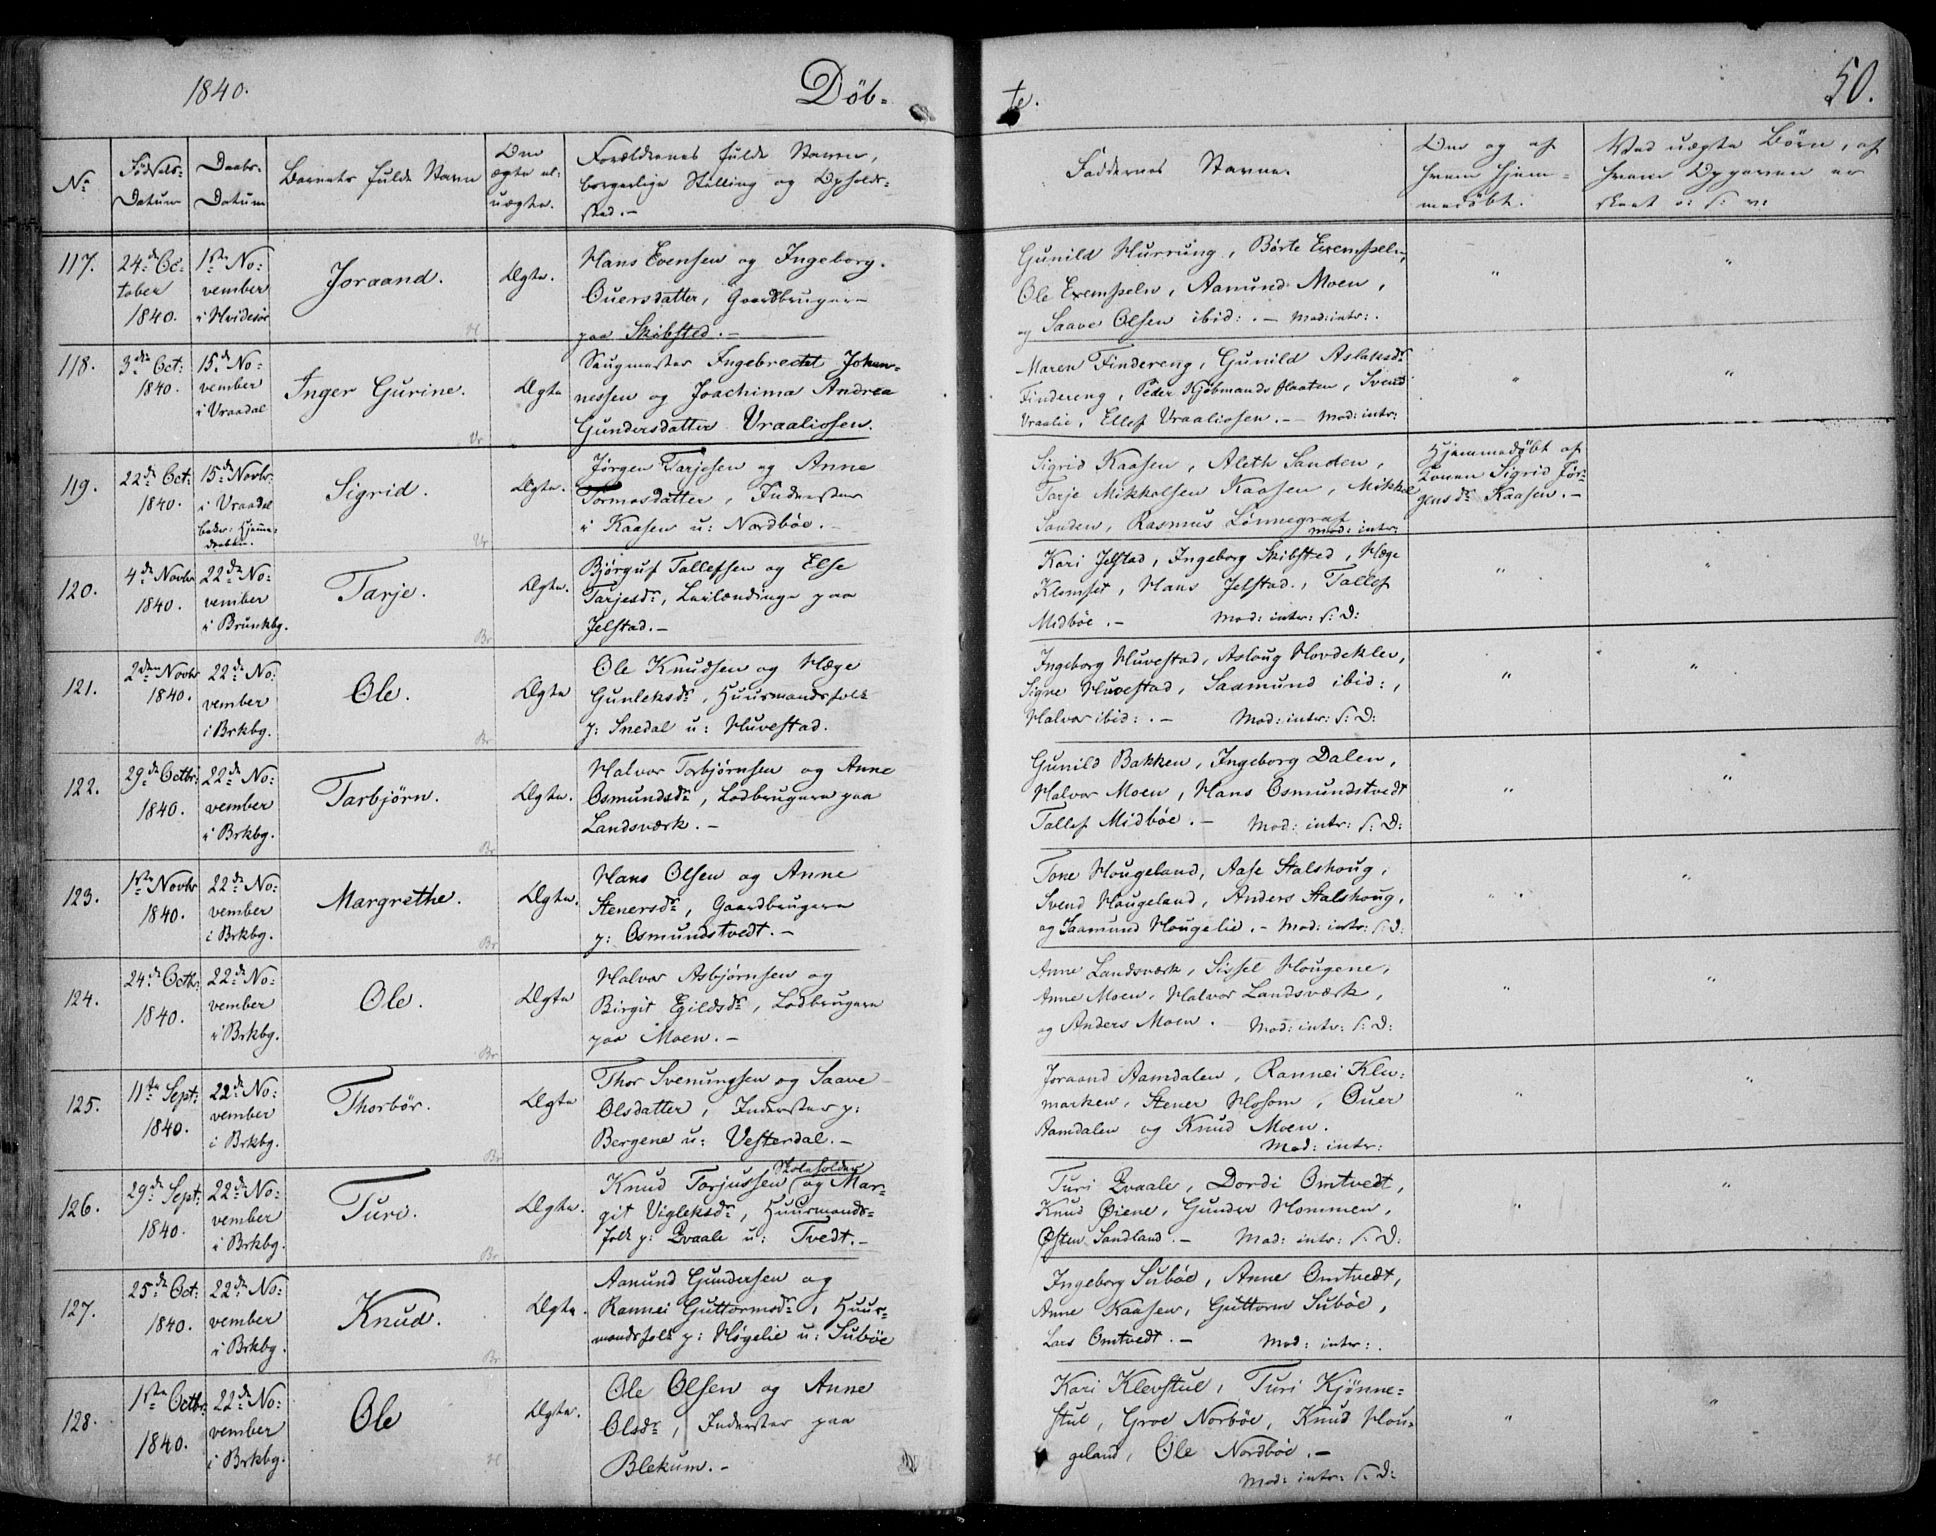 1840.
Døb-
te.
50.
No
Fødsels-
Datum
Daabs-
Datum
Barnets fulde Navn
Om
ægte el:
uægte.
Forældrenes fulde Navn,
borgerlige Stilling og Opholds-
sted.-
Faddernes Navne.
Om og af
hvem hjem-
medøbt.
Ved uægte Børn, af
hvem Opgaven er
skeet o: s: v:
117.
24de Oc-
tober
1840.
1ste No-
vember
i Hvidesøe
Joraand.
Ægte.
Hans Evensen og Ingeborg
Ouersdatter, Gaardbrugere
paa Skibsted.-
Gunild Hurrung,
Ole
Aamund Moen,
og Saave Olsen ibid:.- Mod: intr:.
"
"
118.
3die Oct:
1840.
15de No-
vember
i Vraadal
Inger Gurine.
Vr
Ægte
Saugmester Ingebrecht Johan-
nessen og Joachima Andrea
Gundersdatter Vraaliosen.
Maren Findereng, Gunild Aslaksdr
Findereng, Peder Kjøbmandsflaaten, Svend
Vraalie, Ellef Vraaliosen.- Mod: intr:
"
"
119.
22de Oct:
1840.
15de Novbr
i Vraadal
Hjemme-
daaben.
Sigrid.
Vr
Ægte.
Jørgen Tarjesen og Anne
Tormosdatter, Inderster
i Kaasen u: Nordbøe.-
Sigrid Kaasen, Aleth Sanden,
Tarje Mikkelsen Kaasen, Mikkel
Sanden, Rasmus Lønnegraf
Mod: intr:
Hjemmedøbt af
Konen Sigrid Jør-
gensdr Kaasen.-
"
120.
4de Novbr
1840.
22de No-
vember
i Brunkbg.
Tarje.
Br
Ægte.
Bjørguf Tallefsen og Else
Tarjesdr, Leilændinge paa
Jelstad.-
Kari Jelstad, Ingeborg Skibsted, Hæge
Klomset, Hans Jelstad, Tallef
Midbøe.- Mod: intr: s: D:
"
"
121.
2den Novbr
1840.
22de No-
vember
i Brkbg.
Ole.
Br
Ægte
Ole Knudsen og Hæge
Gunleksdr, Huusmandsfolk
p: Snedal u: Huvestad.
Ingeborg Huvestad, Aslaug Hovdeklev,
Signe Huvestad, Saamund ibid:,
Halvor ibid:.- Mod: intr: s: D:
"
"
122.
29de Octbr:
1840.
22de No-
vember
i Brkbg.
Tarbjørn.
Br
Ægte.
Halvor Torbjørnsen og Anne
Osmundsdr, Lodbrugere paa
Landsværk.-
Gunild Bakken, Ingeborg Dalen,
Halvor Moen, Hans Osmundstvedt
Tallef Midbøe.- Mod: intr: s: D:
"
"
123.
1ste Novbr
1840.
22de No-
vember
i Brkbg.
Margrethe.
Br
Ægte.
Hans Olsen og Anne
Stenersdr, Gaardbrugere
p: Osmundstvedt.-
Tone Hougeland, Aase Stalshoug,
Svend Hougeland, Anders Stalshoug,
og Saamund Hougelie.- Mod: intr: s: D:
"
"
124.
24de Octbr:
1840.
22de No-
vember
i Brkbg.
Ole.
Br
Ægte
Halvor Asbjørnsen og
Birgit Egildsdr, Lodbrugere
paa Moen.-
Anne Landsværk, Sissel Hougene,
Anne Moen, Halvor Landsværk,
og Anders Moen. Mod: intr: s: D:
"
"
125.
11te Sept:
1840.
22de No-
vember
i Brkbg.
Thorbør.
Br
Ægte
Thor Svenungsen og Saave
Olsdatter, Inderster p:
Bergene u: Vesterdal.-
Joraand Aamdalen, Rannei Kle-
marken, Stener Hosom, Ouer
Aamdalen og Knud Moen.
Mod: intr:
"
"
126.
29de Sept:
1840.
22de No-
vember
i Brkbg.
Turi.
Br
Ægte.
Skoleholder
Knud Torjussen og Mar-
git Vigleksdr, Huusmands-
folk p: Qvaale u: Tvedt.-
Turi Qvaale, Dordi Omtvedt,
Knud Øiene, Gunder Hommen,
Østen Sandland.- Mod: intr: s: D:
"
"
127.
25de Oct:
1840.
22de No-
vember
i Brkbg.
Knud.
Br
Ægte.
Aanund Gundersen og
Rannei Guttormsdr, Huus-
mandsfolk p: Høgelie u: Subøe
Ingeborg Subøe, Anne Omtvedt,
Anne Kaasen, Guttorm Subøe,
Lars Omtvedt.- Mod: intr:.
128.
1ste Octbr:
1840.
22de No-
vember
i Brkbg.
Ole
H
Ægte.
Ole Olsen og Anne
Olsdr, Inderster paa
Blekum.-
Kari Klevstul, Turi Kjønne-
stul, Groe Norbøe, Knud Hou-
geland, Ole Nordbøe.-
Mod: intr: s: D:
"
"